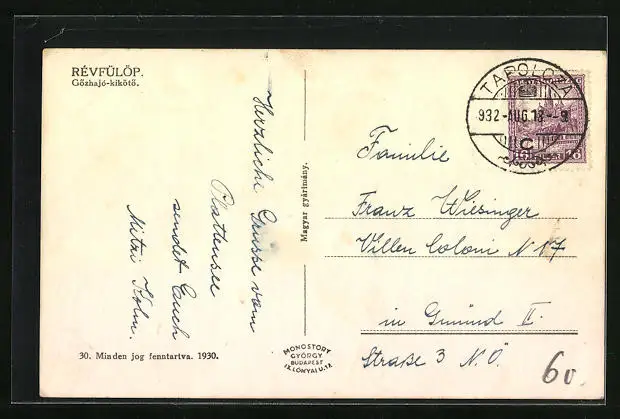 RÉVFÜLÖP.
Gőzhajó-kikötő.
Herzliche Grüsse vom
Plattensee
sendet Euch
Mitzi Kolm.
Magyar gyártmány.
TAPOLCA
932-AUG.18.--9
C
Familie
Franz Wiesinger
Villen Coloni N 17
in Gmünd II.
Straße 3 N.Ö.
60.
30. Minden jog fenntartva. 1930.
MONOSTORY
GYÖRGY
BUDAPEST
IX. LÓNYAI U. 12